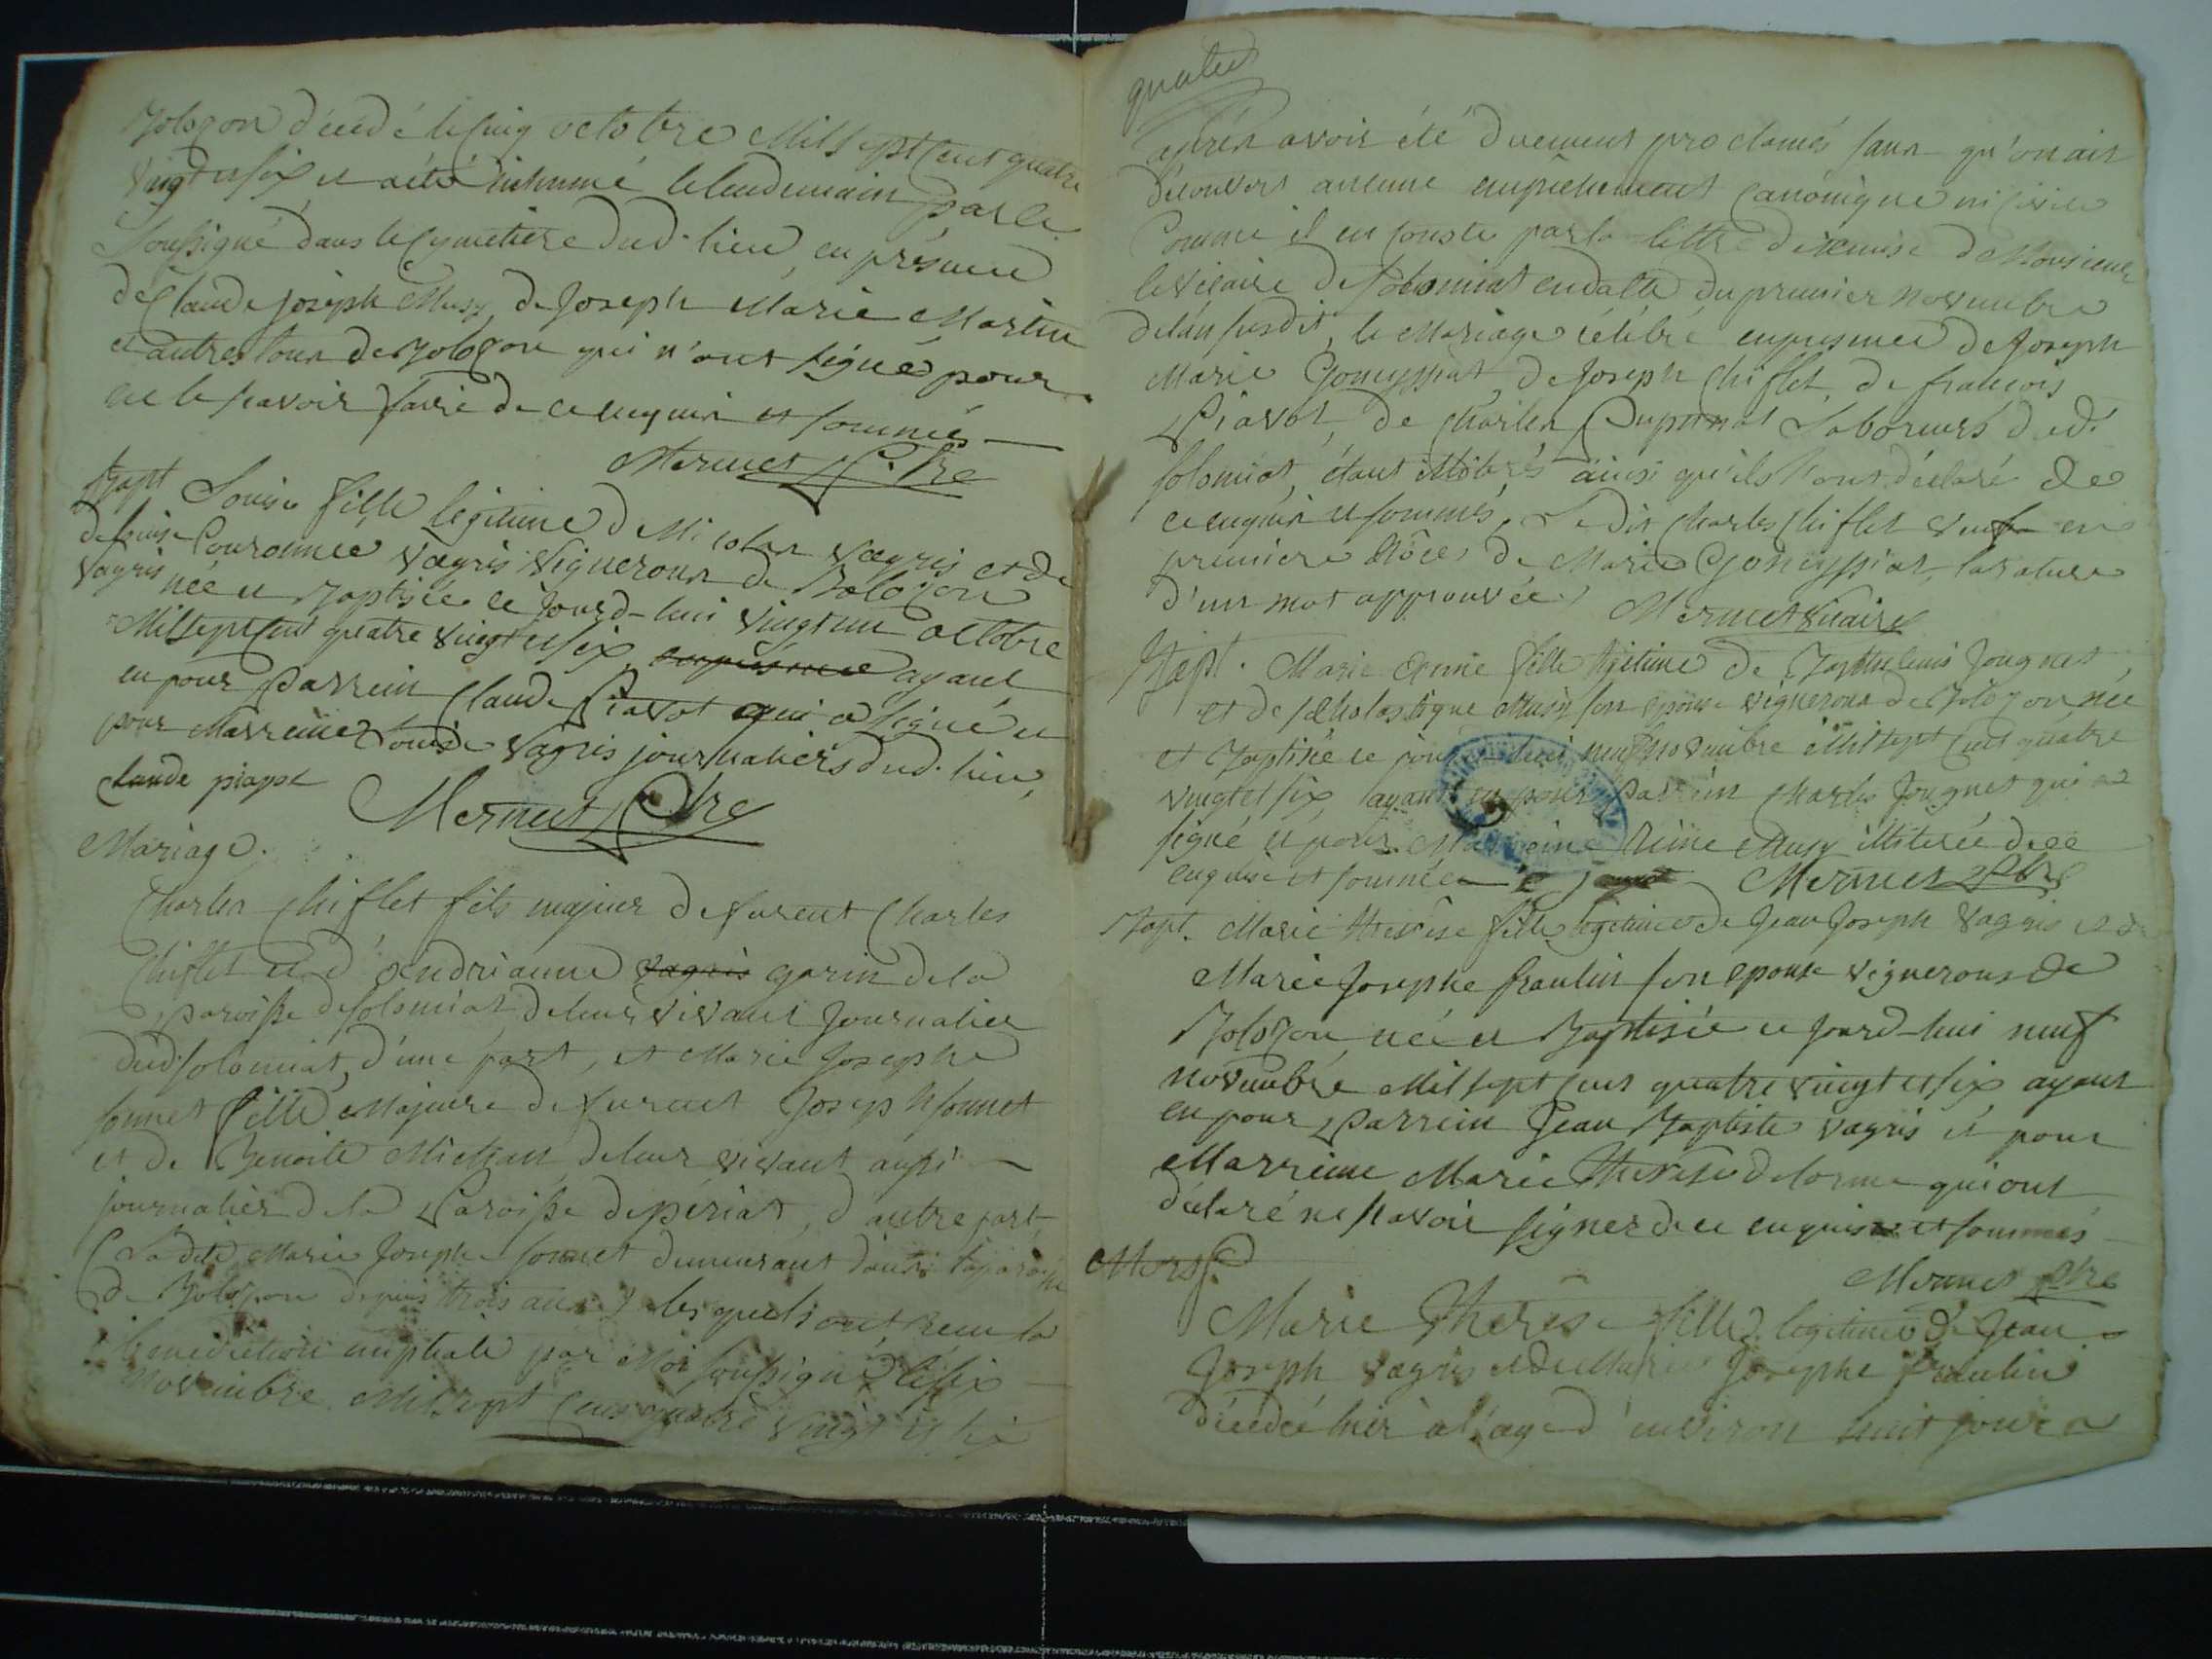 Bolozon décédé le cinq octobre Mil sept cent quatre
vingt et six et a été inhumé le lendemain par le
soussigné dans le cymetiere dud. lieu, en présence
de Claude joseph Musy, de Joseph Marie Martin
et autres tous de Bolozon qui n'ont signé pour
ne le scavoir faire de ce enquis et sommés
Mermet Ptre
Bapt Louise fille légitime de Nicolas vagris et de
de louise Couronnee vagris vignerons de Bolozon
vagris née et Baptisée ce jourd-hui vingt un octobre
Mil sept cent quatre vingt et six, en présence ayant
eu pour Parrein Claude Piavot qui a signé et
pour Marreine louise vagris journaliers dud. lieu,
Claude piapt Mermet Ptre
Mariage.
Charles Chiflet fils majeur de furent Charles
Chiflet et d'andrianne vagris garin de la
paroisse de solomiat de leur vivant journalier
dud. solomiat, d'une part, et Marie Josephe
sonnet fille Majeure de furent Joseph sonnet
et de Benoite de leur vivant aussi
journalier de la Paroisse de périat, d'autre part,
(La dite Marie Josephe sonnet demeurant dans la paroisse
de Bolozon depuis trois ans) lesquels ont recu la
bénédiction nuptiale par Moi soussigné le six
Novembre Mil sept cent quatre vingt et six
après avoir été duement proclamés sans qu'on ait
découvert aucune empêchement canonique ni civile
Comme il en conste par la lettre de remise de Monsieur
le vicaire de solomiat en datte du premier novembre
de l'an susdit, le Mariage célébré en presence de Joseph
Marie Goneyssiat, de Joseph Chiflet, de francois
Piavot, de Charles Laboreurs dud.
solomiat, étant illitérés ainsi qu'ils l'ont déclaré de
ce enquis et sommés, Le dit Charles Chiflet veuf en
premiere Nôces de Marie Goneyssiat, la rature
d'un mot approuvée Mermet vicaire
Bapt. Marie Anne fille légitime de Barthelemi Jougnet,
et de scholastique Musy son épouse vignerons de Bolozon, née
et Baptisée ce jourd-hui neuf novembre Mil sept cent quatre
vingt et six, ayant eu pour Parrein Charles Jougnet qui a
signé et pour Marreine Reine Musy illiterée de ce
enquise et sommée Mermet Ptre
Bapt. Marie therese fille légitime de Jean Joseph vagris et de
Marie Josephe fraulin son épouse vignerons de
Bolozon née et Baptisée ce jourd-hui neuf
novembre Mil sept cent quatre vingt et six ayant
eu pour Parrein Jean Baptiste vagris et pour
Marreine Marie therese delorme qui ont
déclaré ne scavoir signer de ce enquis et sommés
Mermet Ptre
Mors.
Marie Therese fille légitime de Jean
Joseph vagris et de Marie Josephe fraulin
décédée hier a l'age d'environ huit jours a